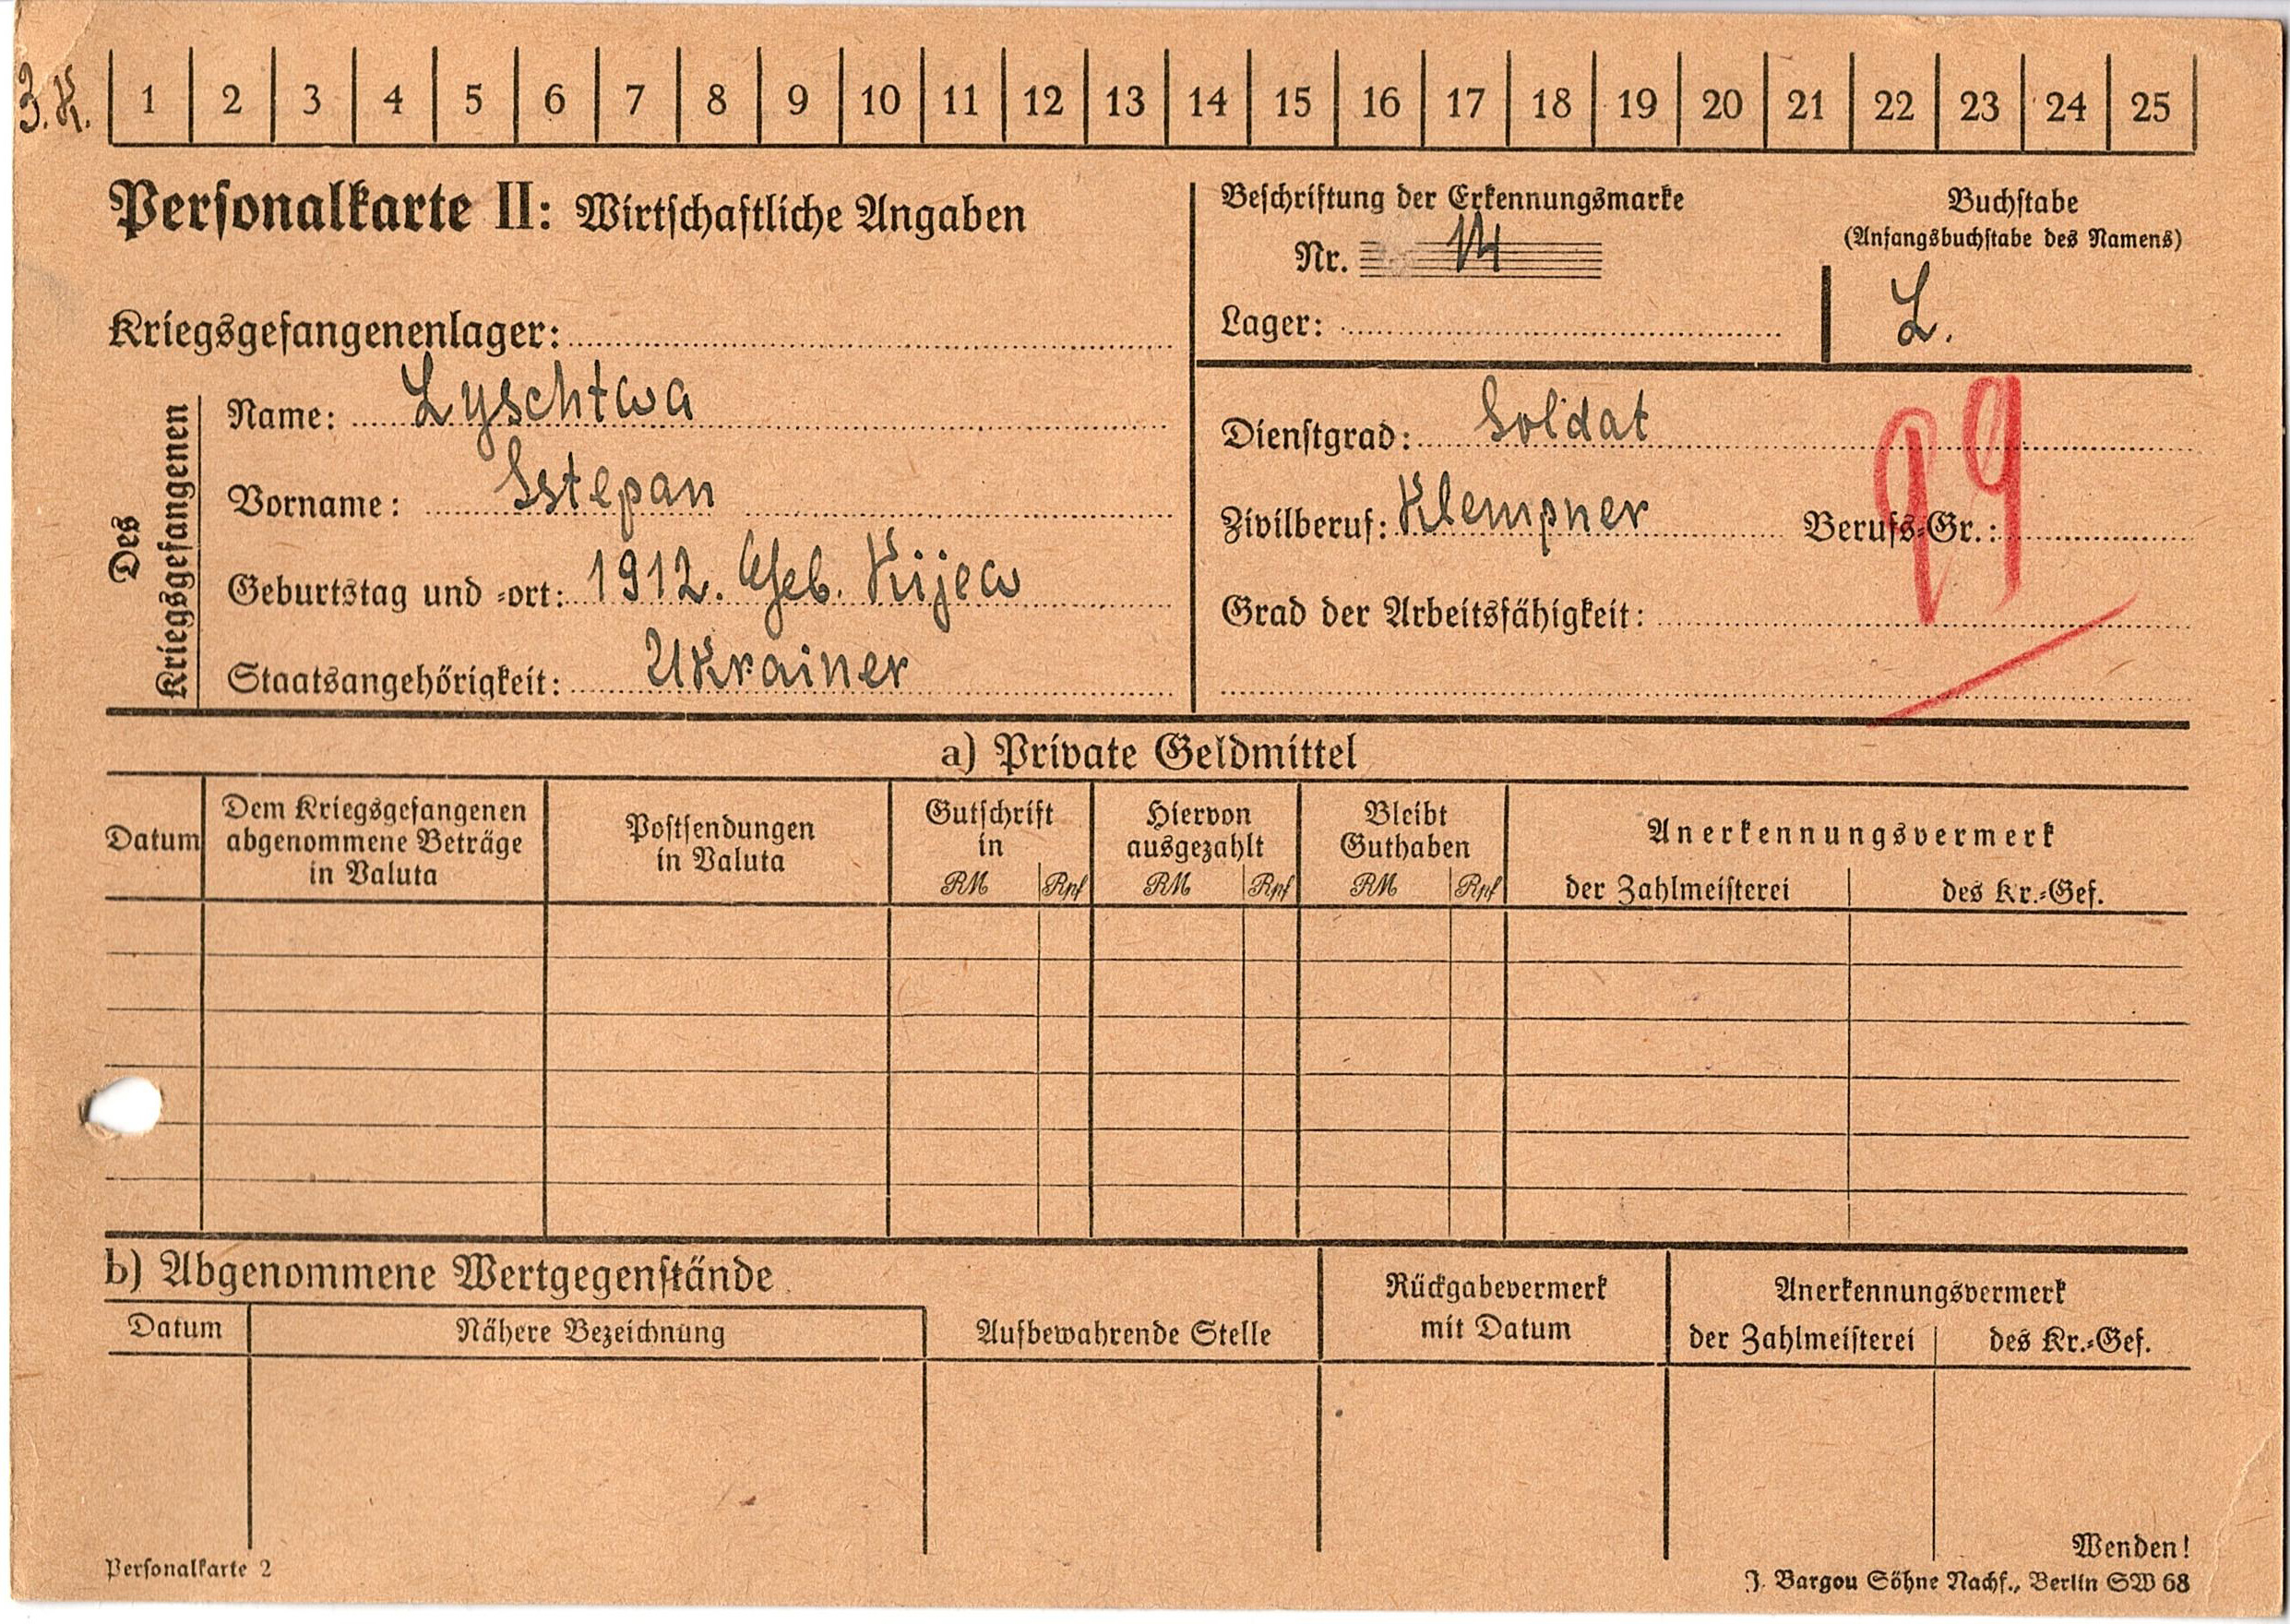 3.K.
1 2 3 4 5 6 7 8 9 10 11 12 13 14 15 16 17 18 19 20 21 22 23 24 25
Personalkarte II: Wirtschaftliche Angaben
Beschriftung der Erkennungsmarke
Nr. 14
Lager:
Buchstabe
(Anfangsbuchstabe des Namens)
L.
Kriegsgefangenenlager:
Des Kriegsgefangenen
Name: Lyschtwa
Vorname: Sstepan
Geburtstag und -ort: 1912. Geb. Kijew
Staatsangehörigkeit: Ukrainer
Dienstgrad: Soldat
Zivilberuf: Klempner Berufs-Gr.:
99
Grad der Arbeitsfähigkeit:
a) Private Geldmittel
Datum
Dem Kriegsgefangenen
abgenommene Beträge
in Valuta
Postsendungen
in Valuta
Gutschrift
in
RM Rpf
Hiervon
ausgezahlt
RM Rpf
Bleibt
Guthaben
RM Rpf
Anerkennungsvermerk
der Zahlmeisterei des Kr.-Gef.
b) Abgenommene Wertgegenstände
Datum Nähere Bezeichnung
Aufbewahrende Stelle
Rückgabevermerk
mit Datum
Anerkennungsvermerk
der Zahlmeisterei des Kr.-Gef.
Wenden!
Personalkarte 2
J. Bargou Söhne Nachf., Berlin SW 68